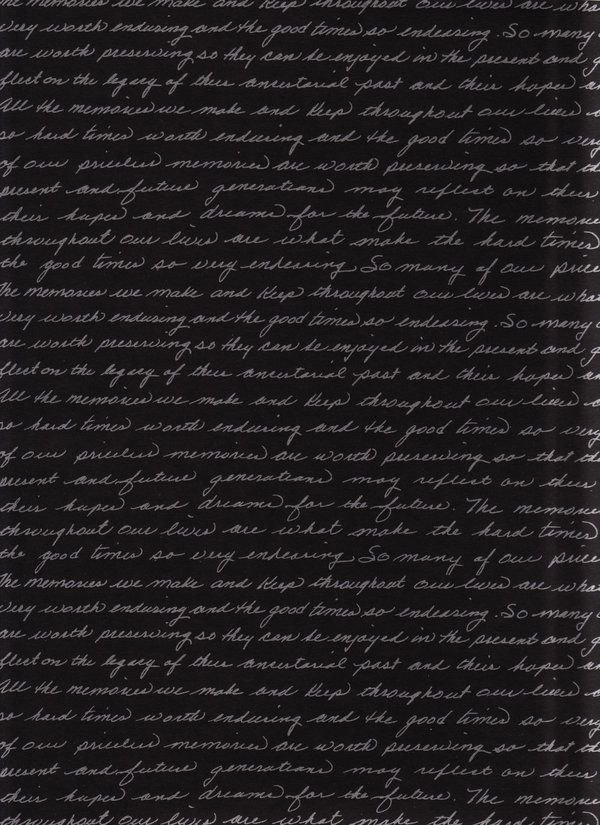 the memories we make and keep throughout our lives are wha
very worth enduring and the good times so endearing. So many o
are worth preserving so they can be enjoyed in the present and g
flect on the legacy of their ancestorial past and their hopes an
All the memories we make and keep throughout our lives a
so hard times worth enduring and the good times so very
of our priceless memories are worth preserving so that th
present and future generations may reflect on their
their hopes and dreams for the future. The memorie
throughout our lives are what make the hard times
the good times so very endearing So many of our price
The memories we make and keep throughout our lives are wha
very worth enduring and the good times so endearing. So many o
are worth preserving so they can be enjoyed in the present and g
flect on the legacy of their ancestorial past and their hopes an
All the memories we make and keep throughout our lives a
so hard times worth enduring and the good times so very
of our priceless memories are worth preserving so that th
present and future generations may reflect on their
their hopes and dreams for the future. The memorie
throughout our lives are what make the hard times
the good times so very endearing So many of our price
The memories we make and keep throughout our lives are wha
very worth enduring and the good times so endearing. So many o
are worth preserving so they can be enjoyed in the present and g
flect on the legacy of their ancestorial past and their hopes an
All the memories we make and keep throughout our lives a
so hard times worth enduring and the good times so very
of our priceless memories are worth preserving so that th
present and future generations may reflect on their
their hopes and dreams for the future. The memorie
throughout our lives are what make the hard times